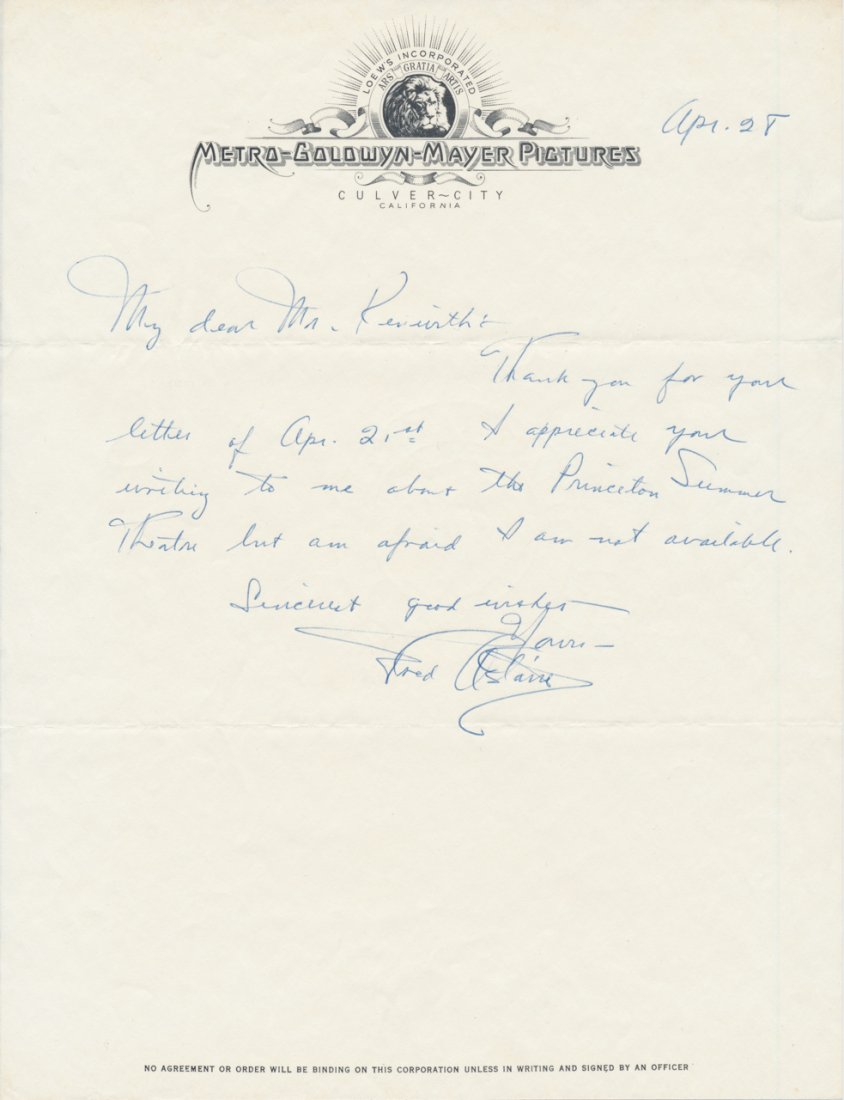 LOEW'S INCORPORATED
ARS GRATIA ARTIS
METRO-GOLDWYN-MAYER PICTURES
CULVER~CITY
CALIFORNIA
Apr. 28
My dear Mr.
Thank you for your
letter of Apr. 21st. I appreciate your
writing to me about the Princeton Summer
Theatre but am afraid I am not available.
Sincerest good wishes
Yours—
Fred Astaire
NO AGREEMENT OR ORDER WILL BE BINDING ON THIS CORPORATION UNLESS IN WRITING AND SIGNED BY AN OFFICER